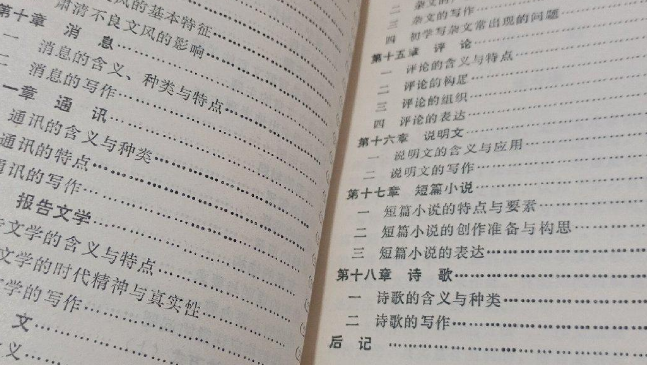 风的基本特征
肃清不良文风的影响
第十章 消 息
一 消息的含义、种类与特点
二 消息的写作
一章 通 讯
通讯的含义与种类
通讯的特点
通讯的写作
报告文学
文学的含义与特点
文学的时代精神与真实性
文学的写作
文
义
二 杂文的
三 杂文的写作
四 初学写杂文常出现的问题
第十五章 评 论
一 评论的含义与特点
二 评论的构思
三 评论的组织
四 评论的表达
第十六章 说明文
一 说明文的含义与应用
二 说明文的写作
第十七章 短篇小说
一 短篇小说的特点与要素
二 短篇小说的创作准备与构思
三 短篇小说的表达
第十八章 诗 歌
一 诗歌的含义与种类
二 诗歌的写作
后 记